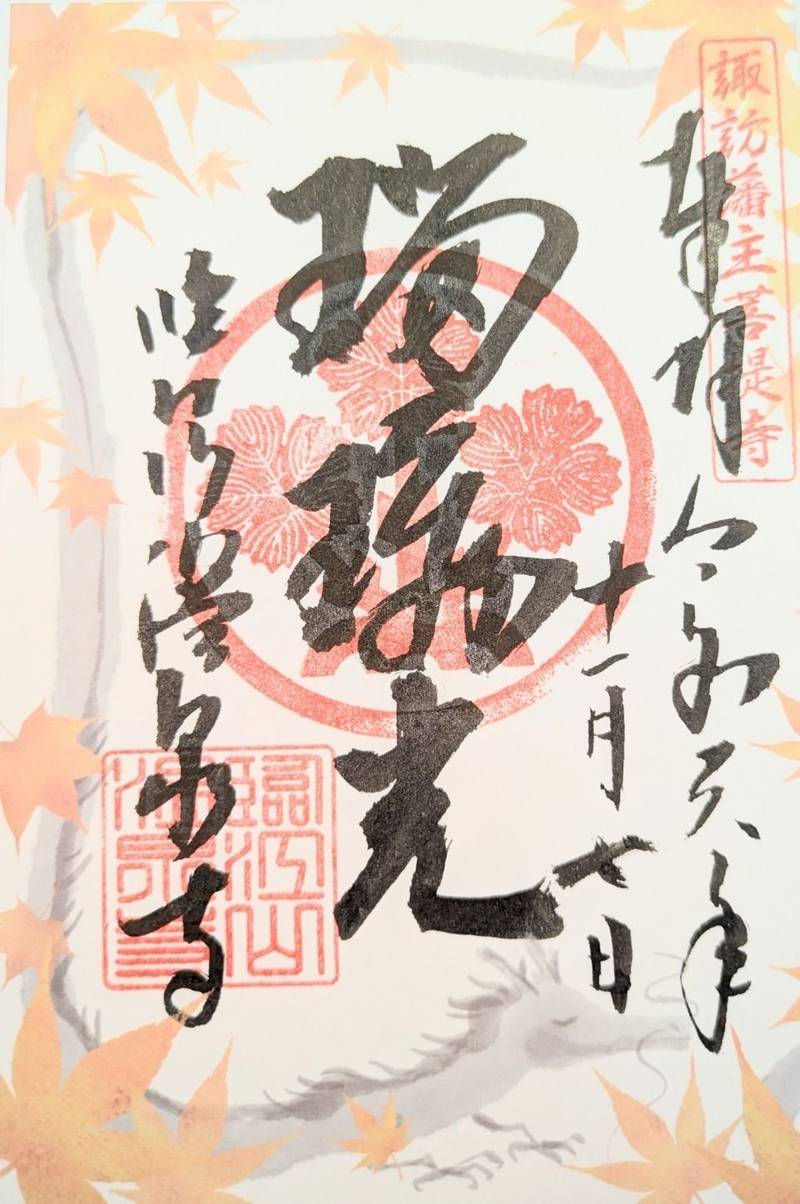 諏訪藩主菩提寺
奉拝
令和六年
十一月七日
瑠璃光
臨江山温泉寺
臨江山
温泉寺